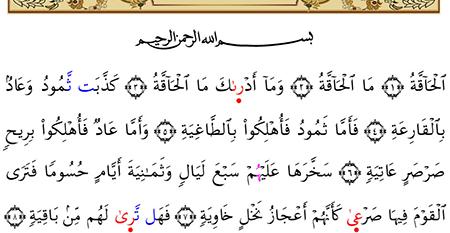 بسم الله الرحمن الرحيم
ٱلْحَآقَّةُ ﴿١﴾ مَا ٱلْحَآقَّةُ ﴿٢﴾ وَمَآ أَدْرىٰكَ مَا ٱلْحَآقَّةُ ﴿٣﴾ كَذَّبَت ثَّمُودُ وَعَادٌۢ
بِٱلْقَارِعَةِ ﴿٤﴾ فَأَمَّا ثَمُودُ فَأُهْلِكُوا۟ بِٱلطَّاغِيَةِ ﴿٥﴾ وَأَمَّا عَادٌ فَأُهْلِكُوا۟ بِرِيحٍ
صَرْصَرٍ عَاتِيَةٍ ﴿٦﴾ سَخَّرَهَا عَلَيْهُمْ سَبْعَ لَيَالٍ وَثَمَٰنِيَةَ أَيَّامٍ حُسُومًا فَتَرَى
ٱلْقَوْمَ فِيهَا صَرْعىٰ كَأَنَّهُمْ أَعْجَازُ نَخْلٍ خَاوِيَةٍ ﴿٧﴾ فَهَل تَّرىٰ لَهُم مِّنۢ بَاقِيَةٍ ﴿٨﴾